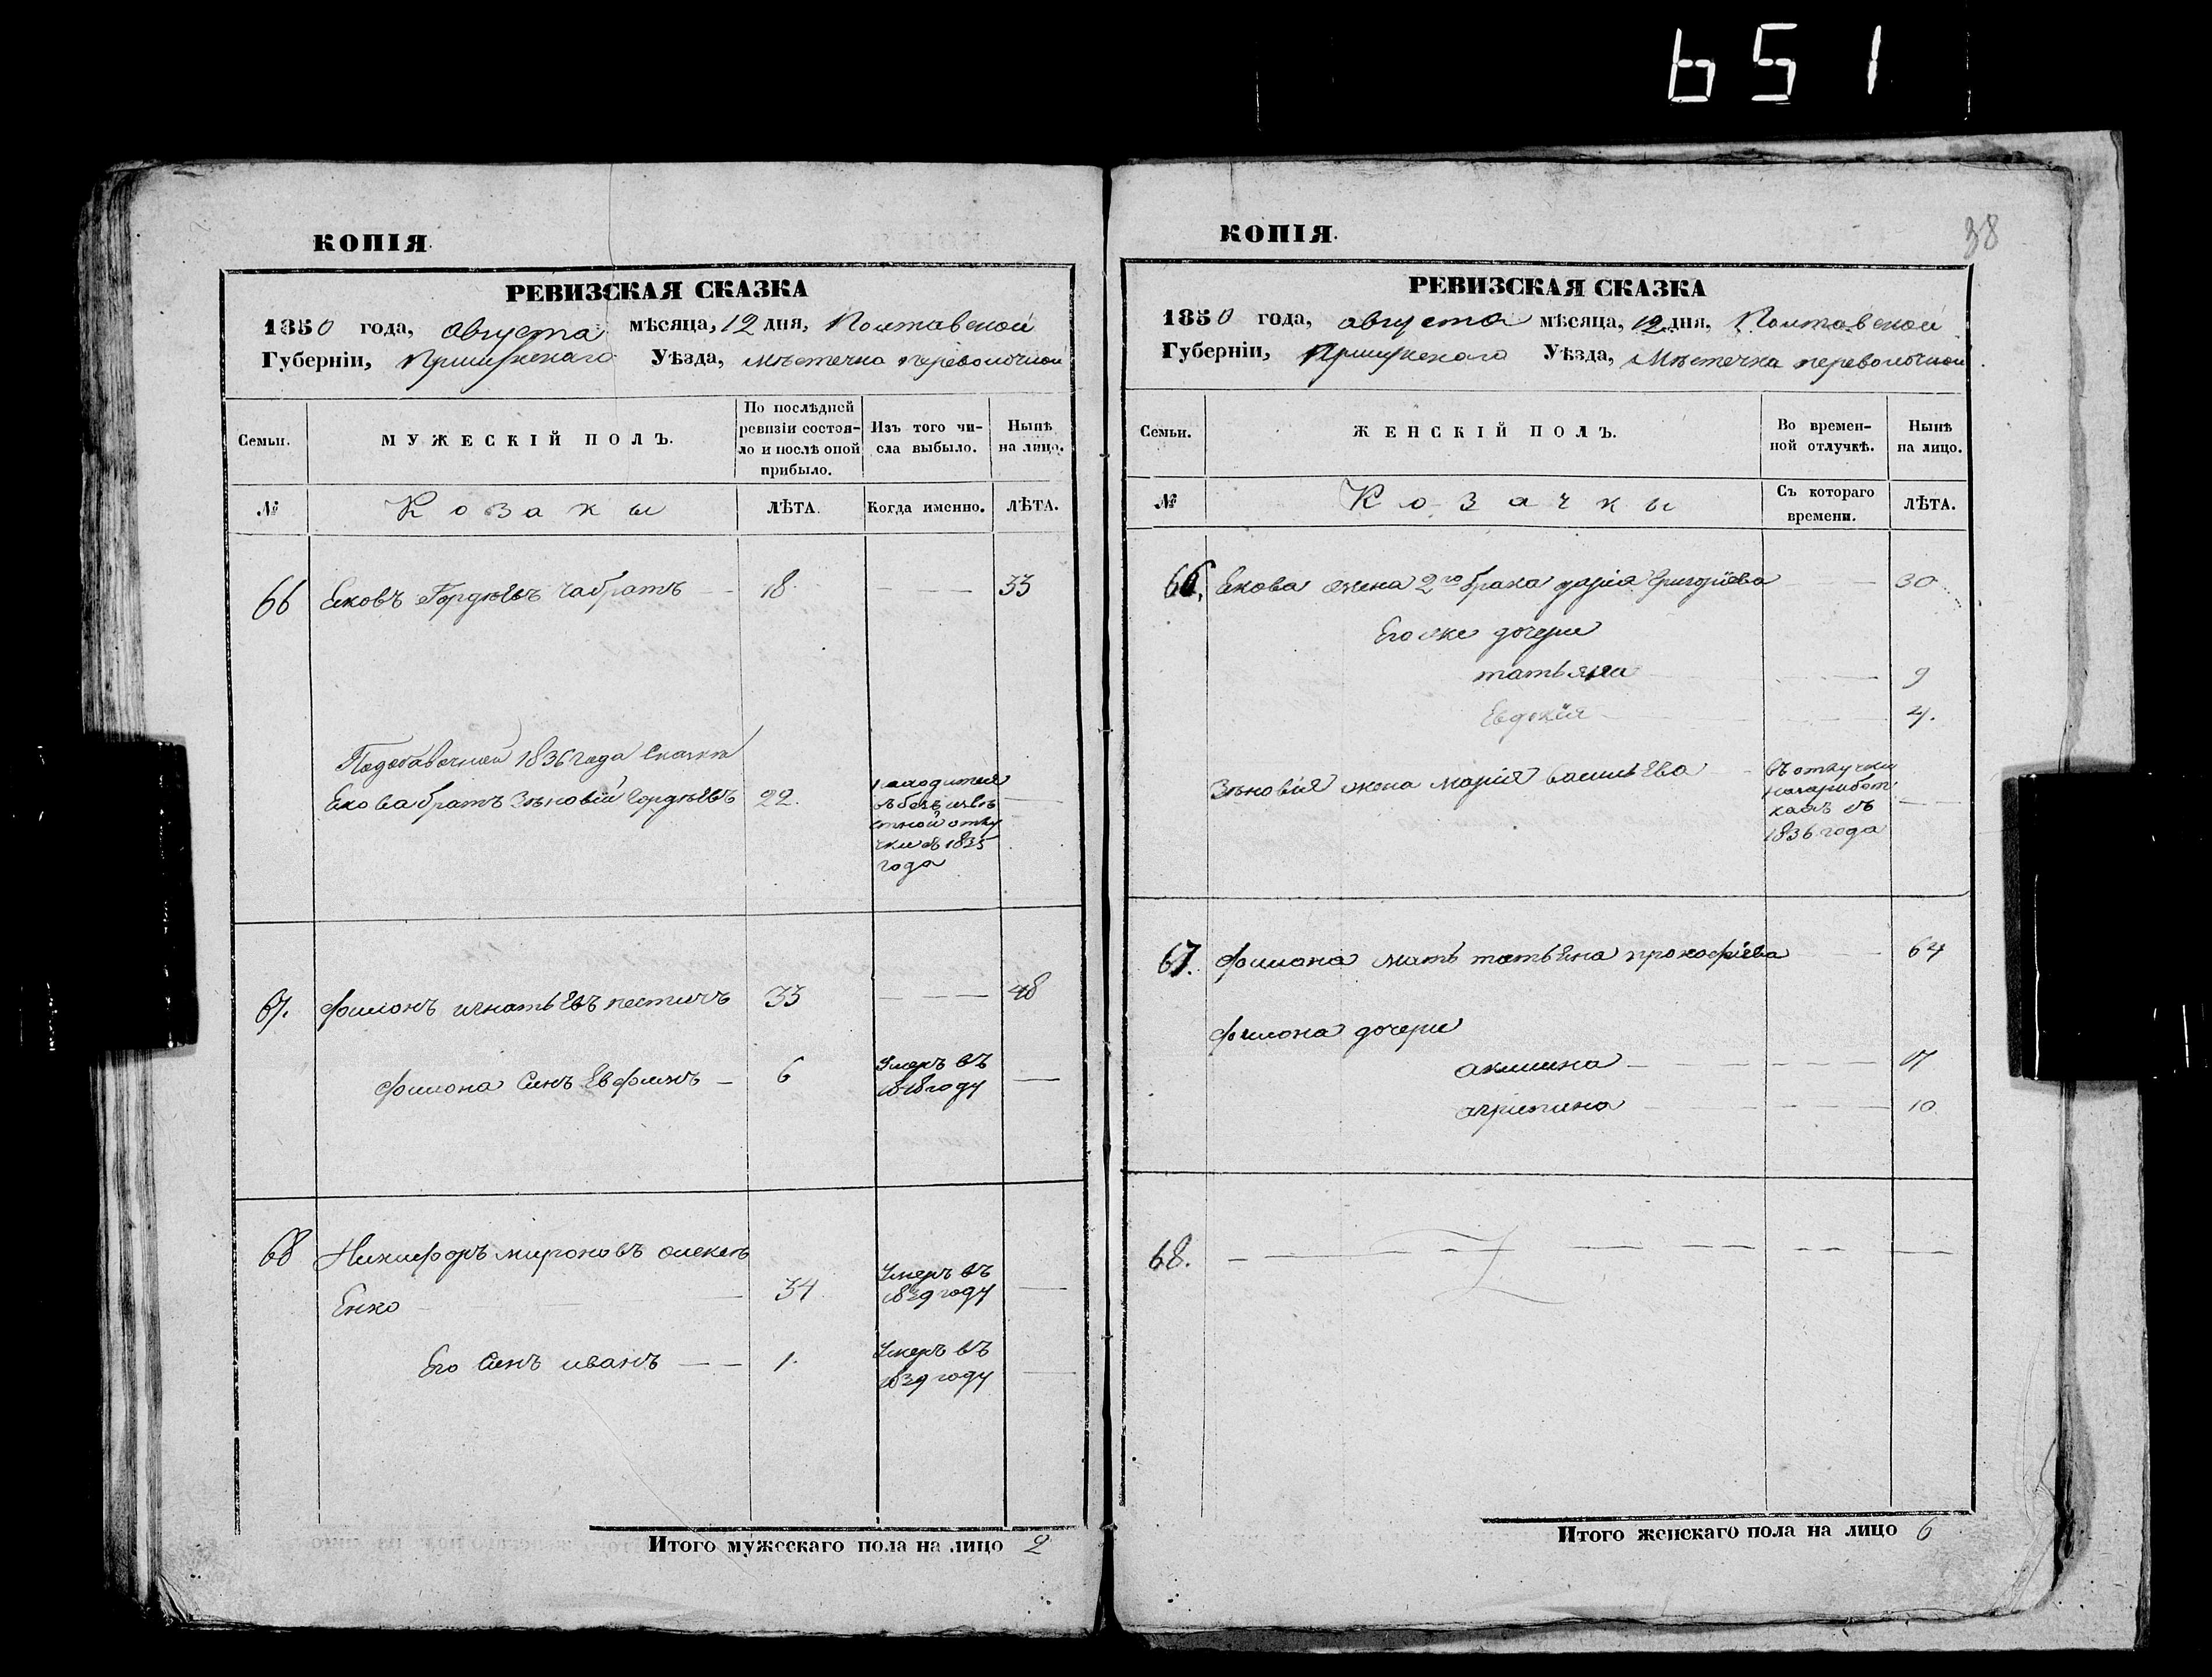 651
КОПІЯ.
РЕВИЗСКАЯ СКАЗКА
1850 года, августа мѣсяца, 12 дня, Полтавской
Губерніи, Прилукскаго Уѣзда, мѣстечка переволочной
Семьи.
МУЖЕСКІЙ ПОЛЪ.
По послѣдней ревизіи состоя-
ло и послѣ оной прибыло.
Изъ того чи-
сла выбыло.
Нынѣ на лицо.
№
Козаки
ЛѢТА.
Когда именно.
ЛѢТА.
66 Яковъ Гордѣевъ 18. — — 33
1836 года сказки
Якова братъ Зѣновій Гордѣевъ 22. находится
въ безъизвѣ —
стной отлу
чки съ 1835
года
67. филонъ игнатьевъ 33 — — — 48
филона синъ — 6 Умеръ въ
1848 году —
68 Никифоръ мироновъ олексѣ
Енко — 34 Умеръ въ
1849 году —
Его синъ иванъ — — 1. Умеръ въ
1839 году —
Итого мужескаго пола на лицо 2
38
КОПІЯ.
РЕВИЗСКАЯ СКАЗКА
1850 года, августа мѣсяца, 12 дня, Полтавской
Губерніи, Прилукскаго Уѣзда, Мѣстечка переволочной
Семьи.
ЖЕНСКІЙ ПОЛЪ.
Во времен-
ной отлучкѣ.
Нынѣ
на лицо.
№
Козачки
Съ котораго
времени.
ЛѢТА.
66. Якова жена 2го брака дарія Григоріева — — 30
Его же дочери
татьяна — 9
Евдокія — 4.
Зѣновія жена марія васильева — въ отлучки
на заработ
кахъ съ —
1836 года
67. филона мать татьяна прокофіева — — 64
филона дочери
акилина — — — 17
агрипина — — — 10
68. — — — — — — —
Итого женскаго пола на лицо 6